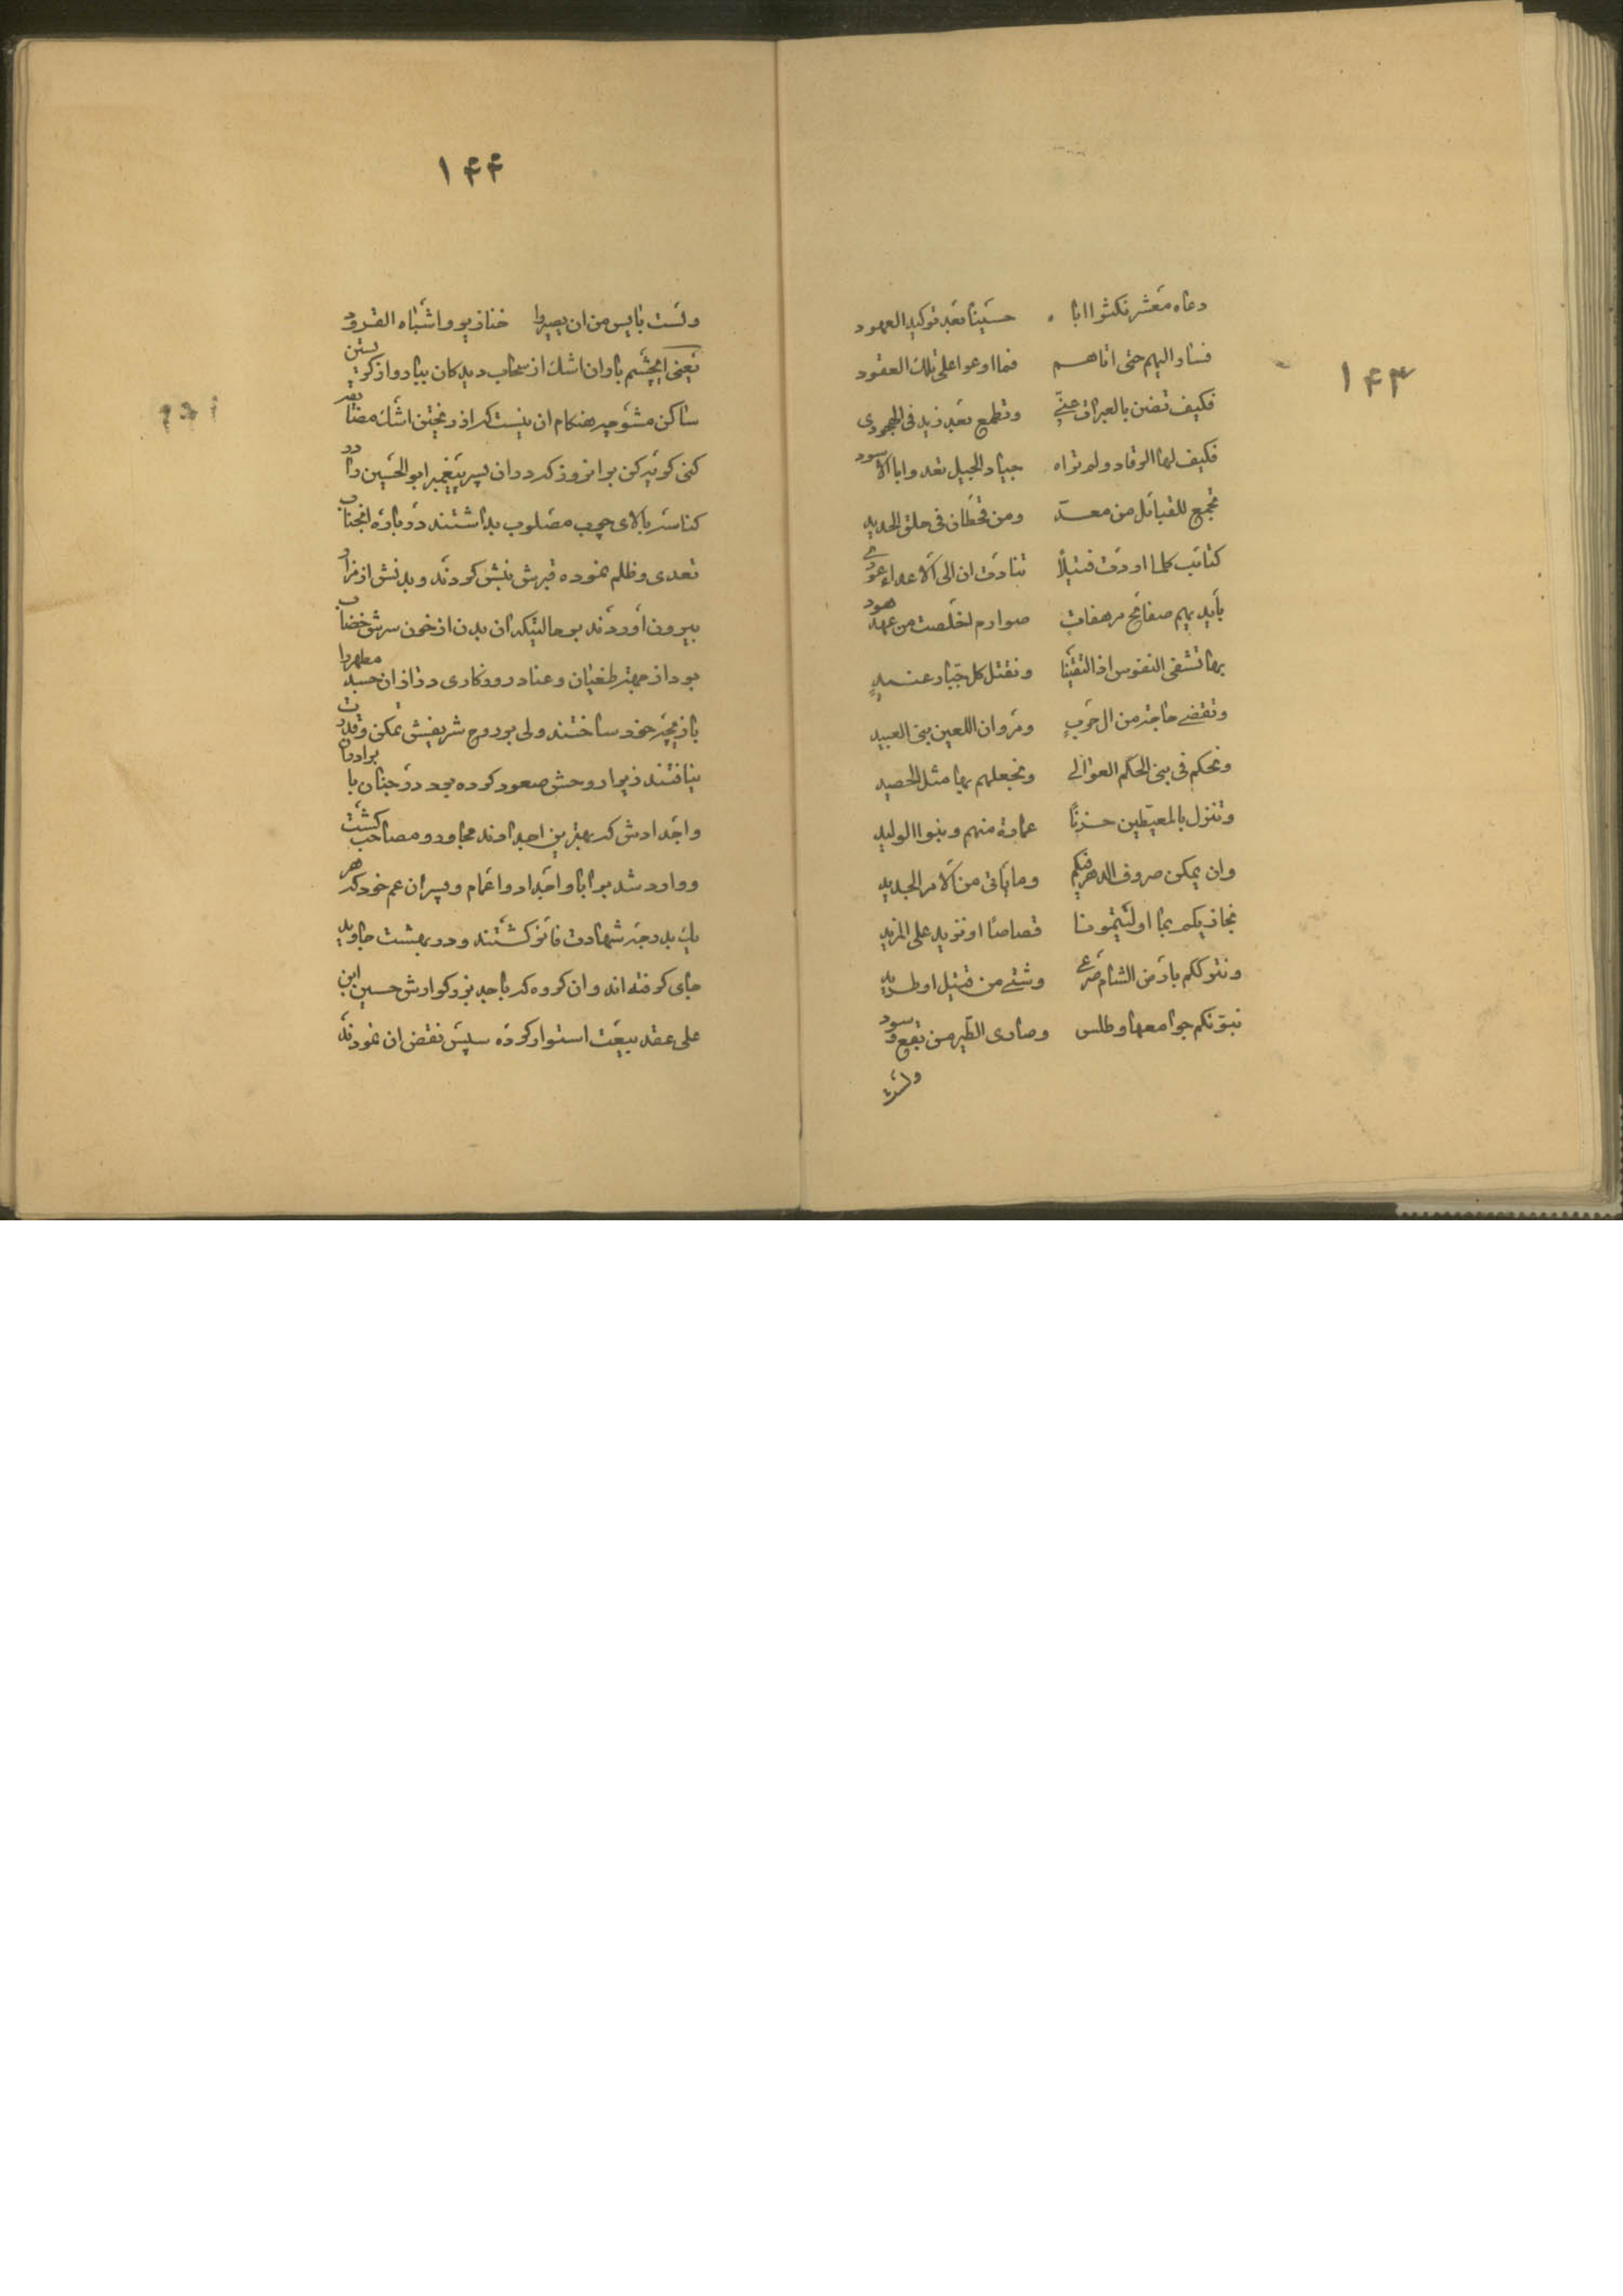 ۱۴۳
دعاه معشر نكثوا اباه حسينا بعد توكيد العهود
فسار اليهم حتى اتاهم فما ارعوا على تلك العقود
فكيف تضن بالعبرات عيني وتطمع بعد زيد في الهجودى
فكيف لها الرقاد ولم تراه جياد الخيل تعدوا بالاسود
تجمع للقبائل من معدّ ومن قحطان في حلق الحديد
كتائب كلما اردت قتيلاً تنادت ان الى الاعداء عودى
بايديهم صفائح مرهفات صوارم اخلصت من عهد هود
بها تشفى النفوس اذا التقينا ونقتل كل جبّار عنيدٍ
ونقضے حاجة من ال حربٍ ومروان اللعين بنى العبيد
ونحكم في بنى الحكم العوالى ونجعلهم بها مثل الحصيد
وننزل بالمعيطين حزناً عمارة منهم وبنوا الوليد
وان يمكن صروف الدهر فيكم وما ياتى من الامر الجديد
نجازيكم بما اوليتمونا قصاصاً او نزيد على المزيد
ونترككم بارض الشام صرعى وشتے من قتيل او طريد
تبؤنكم جوامعها وطلس وضارى الطير من بقع وسود
ولست
۱۴۴
ولست بايس من ان يصيروا خنازير واشباه القرود
يعنى ايچشم باران اشك از سحاب ديدكان ببار و از كريستن
ساكن مشو چه هنكام ان نيست كه از ريختن اشك مضايقه
كنى كوئيه كن بر انروز كه در ان پسر پيغمبر ابو الحسين را در
كناسه بالاى چوب مصلوب بداشتند در باره انجناب
تعدى و ظلم نموده قبرش نبش كردند و بدنش از مزار
بيرون اوردند بر حالتيكه ان بدن از خون سرش خضاب
بود از جهة طغيان و عناد روزكارى دراز ان جسد مطهر را
بازيچه خود ساختند ولى بر روح شريفش تمكن و قدرت
نيافتند زيرا روحش صعود كرده بود در جنان با برادران
و اجدادش كه بهترين اجدادند مجاور و مصاحب كشت
و وارد شد بر ابا و اجداد و اعمام و پسران عم خود كه هر
يك بدرجه شهادت فائز كشتند و در بهشت جاويد
جاى كرفته اند و ان كروه كه با جد بزركوارش حسين ابن
على عقد بيعت استوار كرده سپس نقض ان نمودند